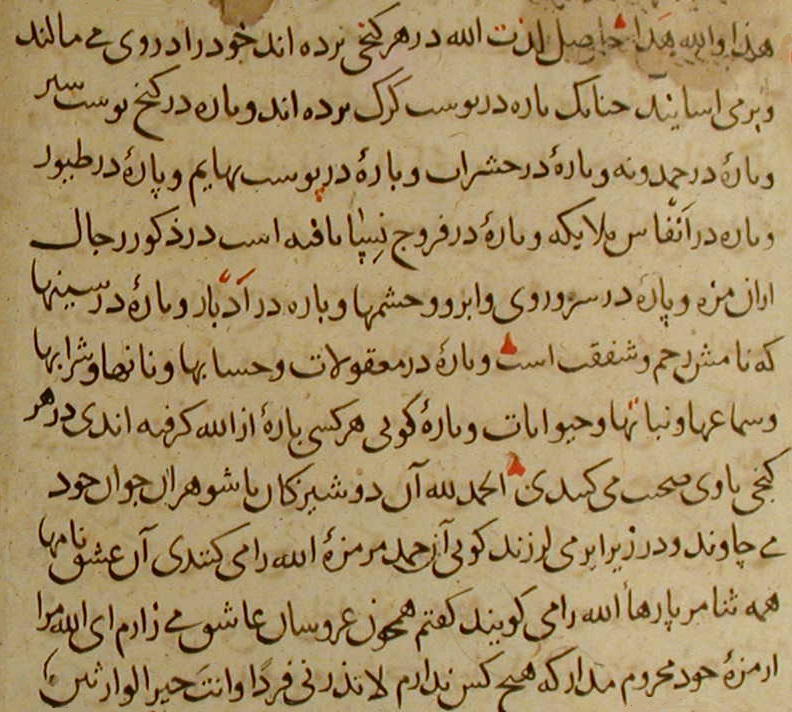 هذا والله هذا حاصل لذت الله در هر کنجی برده اند خود را در وی می مالند
و برمی اسایند چنانک پاره در پوست کرک برده اند و پاره در کنج پوست سیر
و پارۀ در حمدونه و پارۀ در حشرات و پارۀ در پوست بهایم و پارۀ در طیور
و پاره در انفاس ملایکه و پارۀ در فروج نسا یافته است در ذکور رجال
ازان مزه و پارۀ در سر و روی و ابرو و چشمها و پاره در ادبار و پارۀ در سینها
که نامش رحم و شفقت است و پارۀ در معقولات و حسابها و نانها و شرابها
و سماعها و نباتها و حیوانات و پارۀ کویی هر کسی پارۀ از الله کرفته اندی در هر
کنجی با وی صحبت می کنندی الحمد لله آن دوشیزکان با شوهران جوان خود
می چاوند و در زیر ابر می لرزند کویی آن حمد مر مزۀ الله را می کنندی آن عشق نامها
همه ثنا مر پارها الله را می کویند کفتم همچون عروسان عاشق می زارم ای الله مرا
از مزۀ خود محروم مدار که هیچ کس ندارم لا تذرنی فردا وانت خیر الوارثین